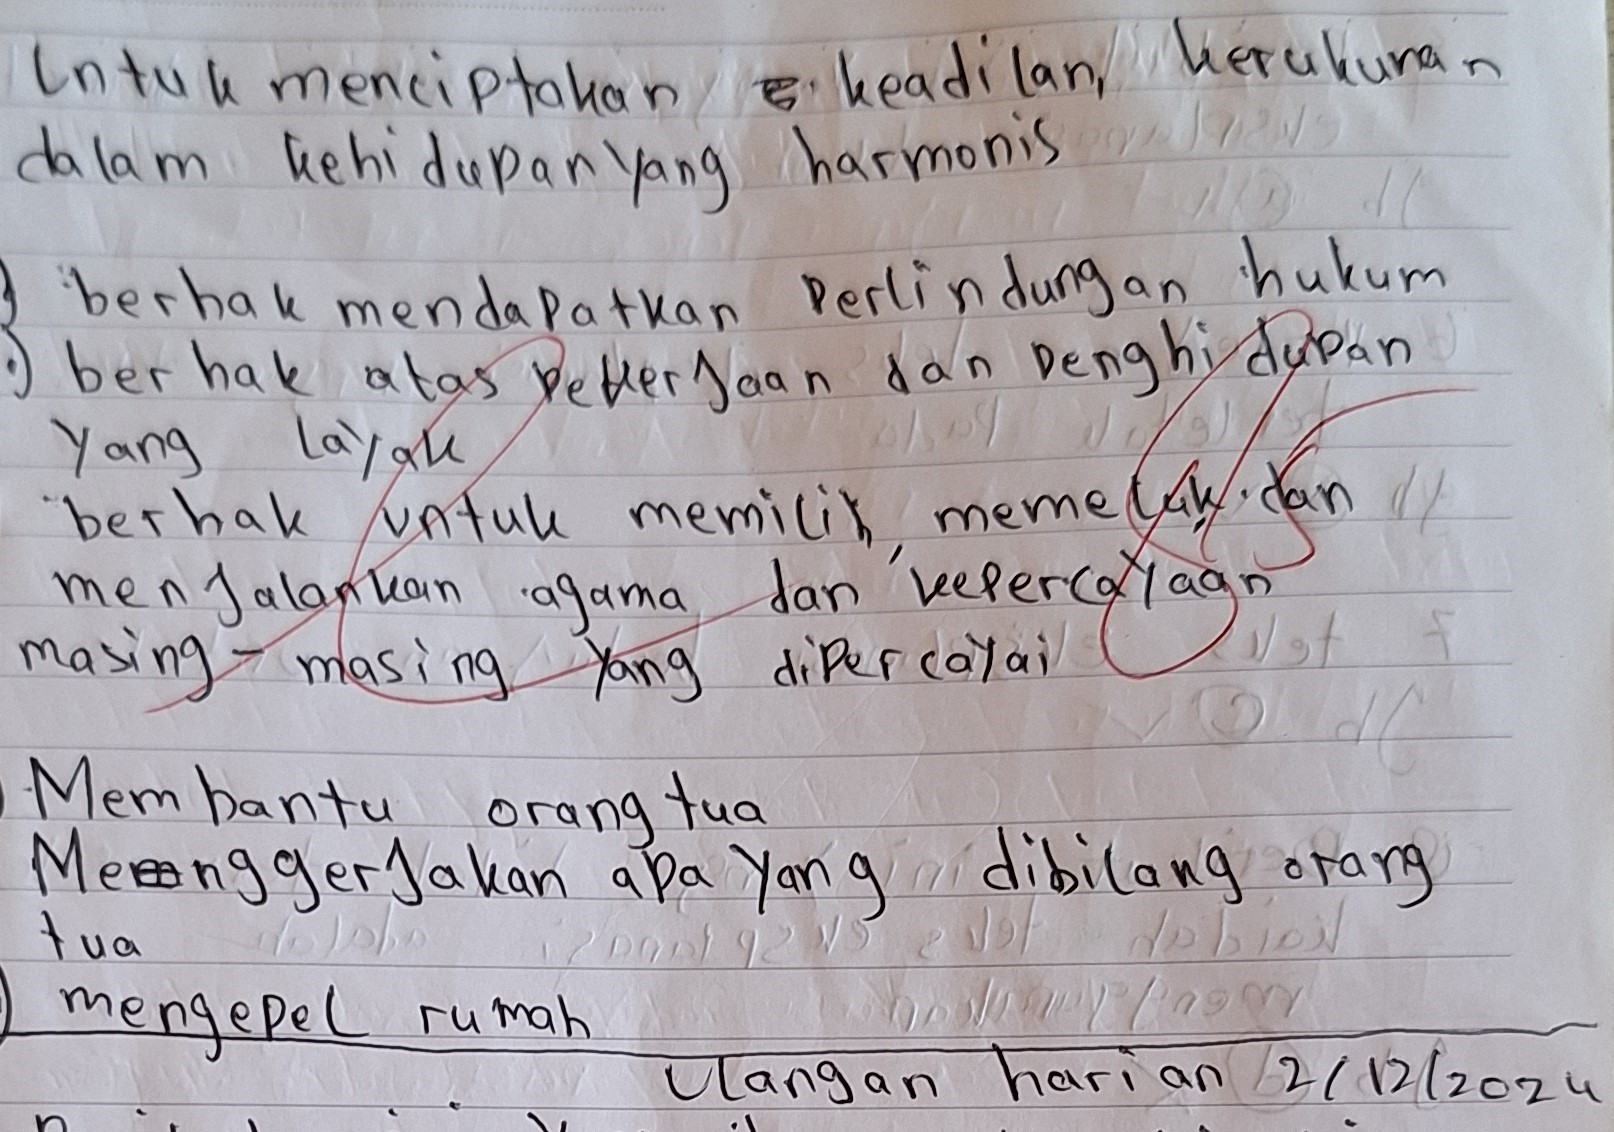 Untuk menciptakan keadilan, kerukunan
dalam kehidupan yang harmonis
berhak mendapatkan perlindungan hukum
berhak atas pekerjaan dan penghidupan
yang layak
berhak untuk memilih, memeluk dan
menjalankan agama dan kepercayaan
masing-masing yang dipercayai
Membantu orang tua
Menggerjakan apa yang dibilang orang
tua
mengepel rumah
Ulangan harian 2/12/2024